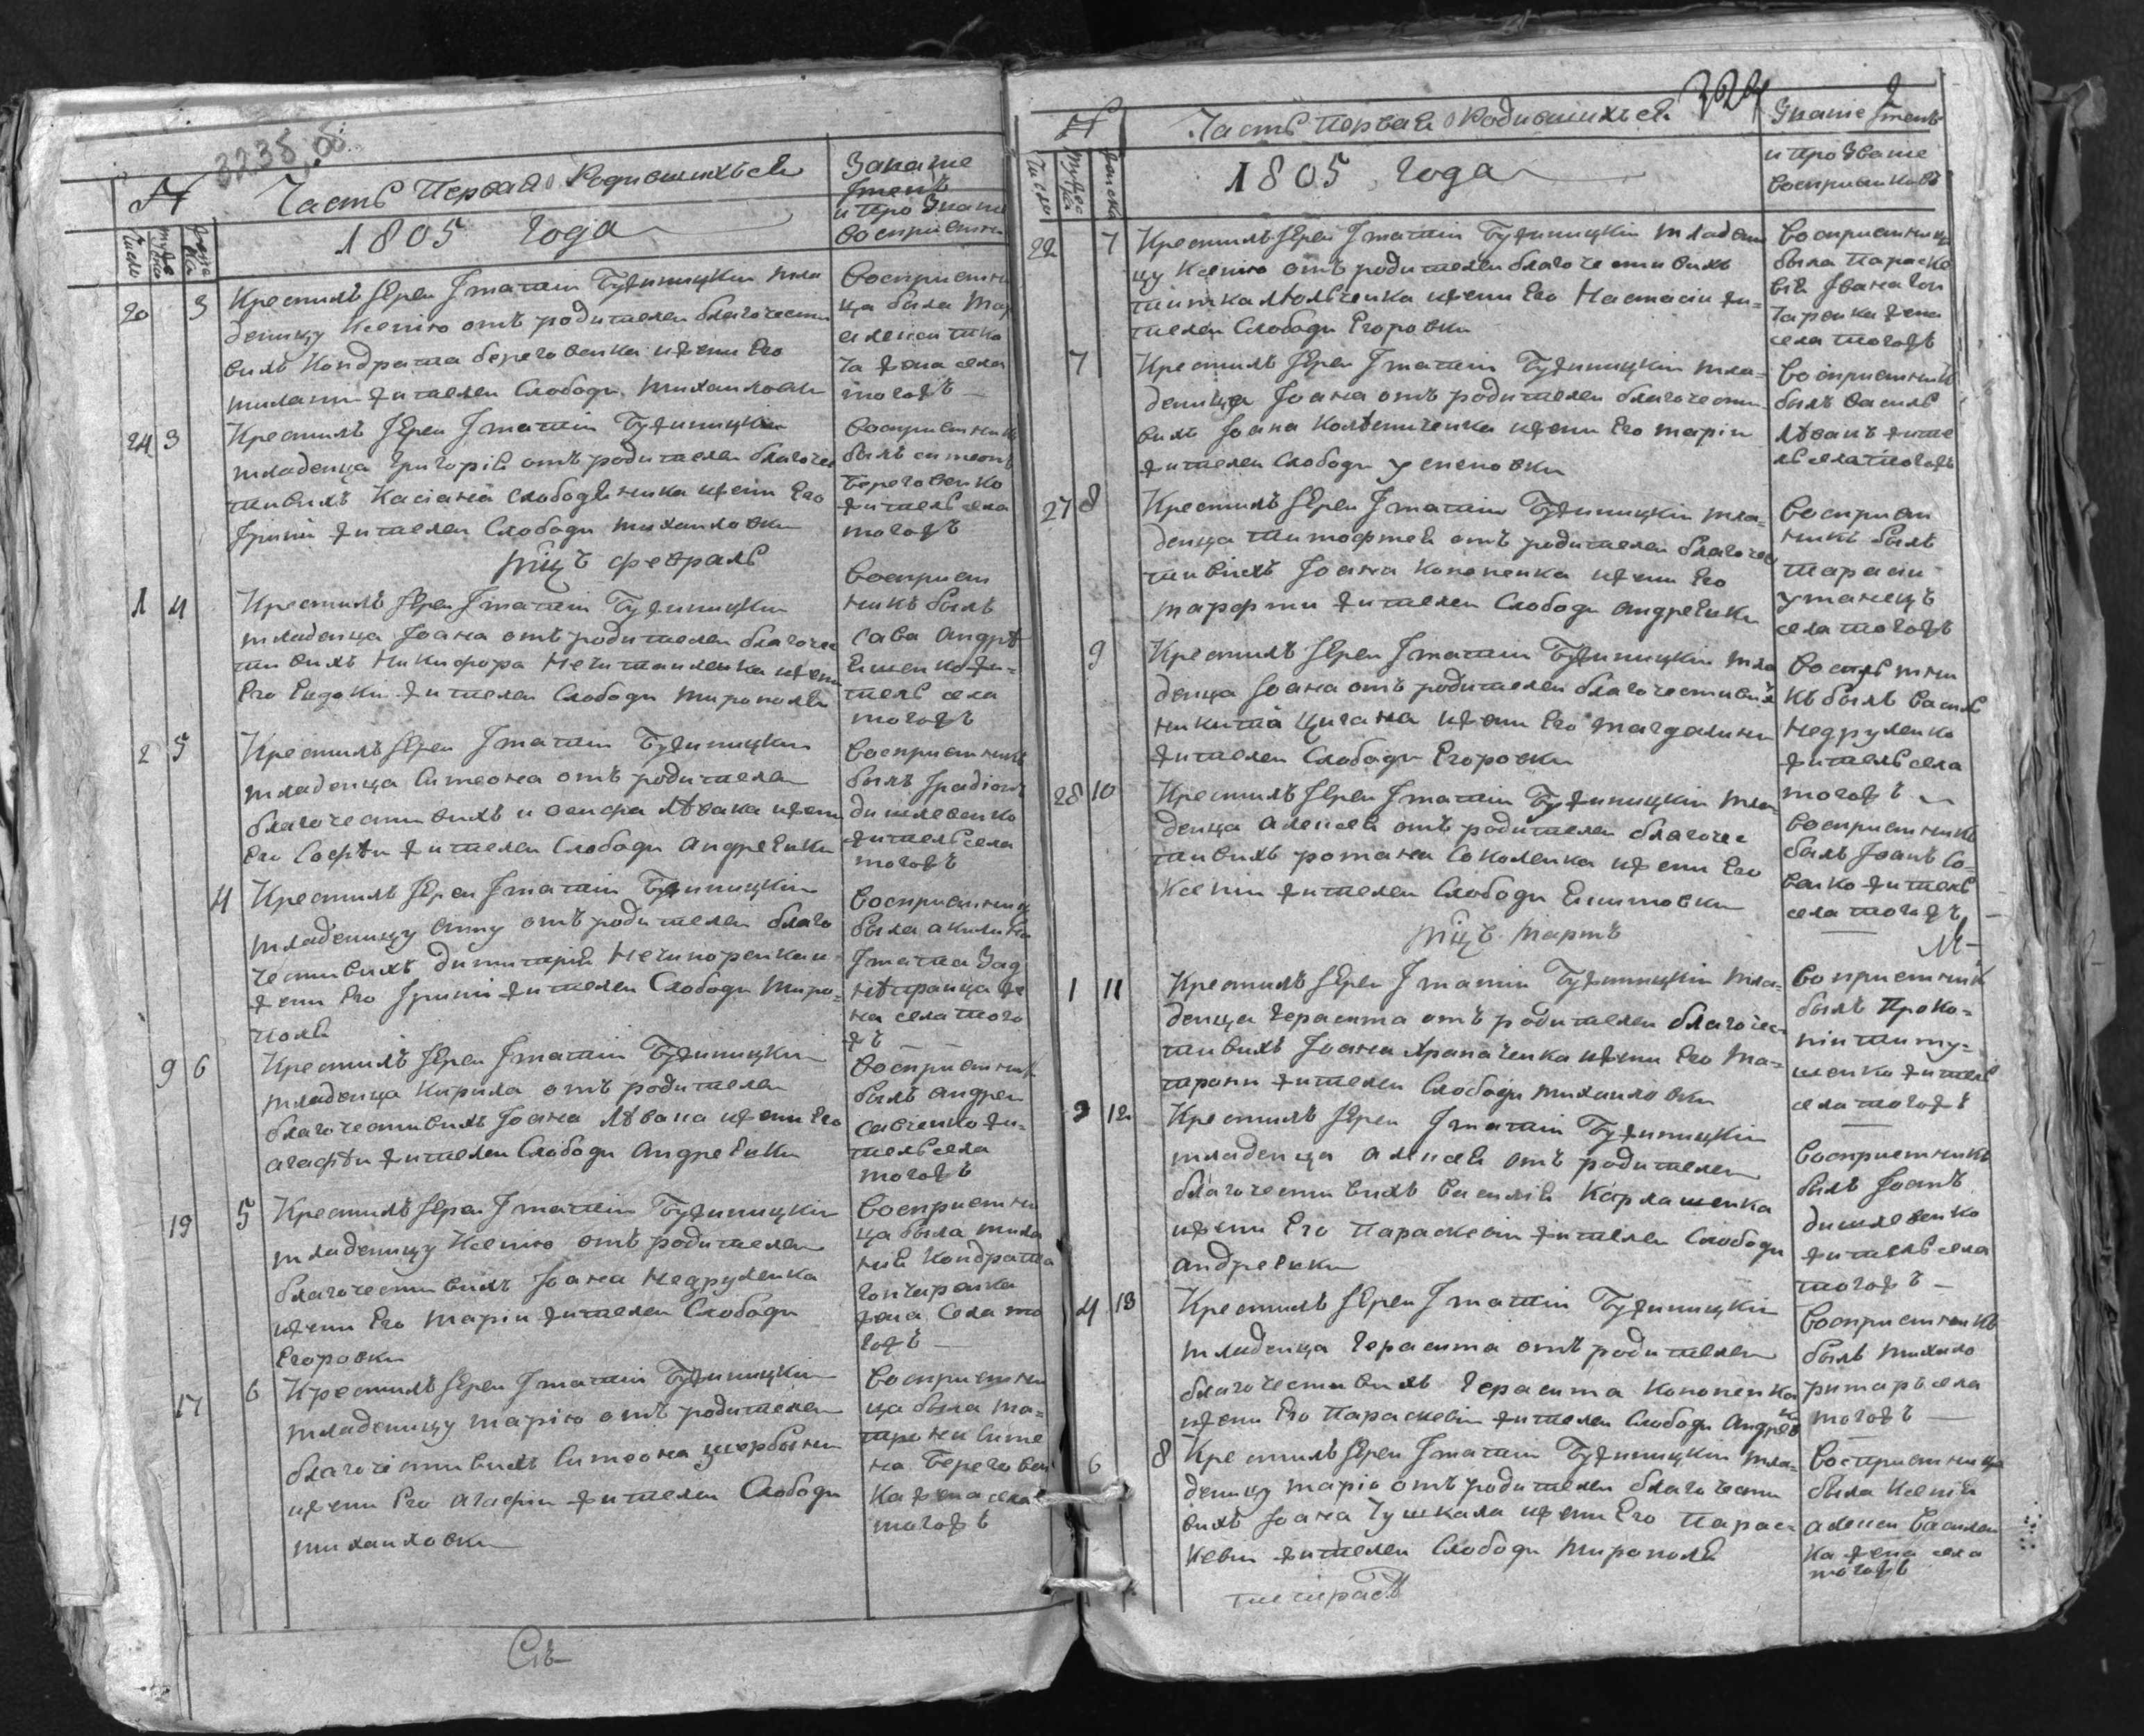 3235 об.
№ Часть Первая о Родившихъся
1805 года
Число
мужеска
женска
Звание
Именъ
и прозвание
восприемни
20 3 Крестилъ Иерей Игнатий Бужиницкий мла
деницу Ксению отъ родителей благочести
вихъ Кондрата береговенка и жени Его
жителей Слободи Михайловки
восприемни
ца била
жена села
тогожъ
24 3 Крестилъ Иерей Игнатий Бужиницкий
младенца Григория отъ родителей благочес
тивихъ Касиана слободяника и жени Его
Ирини жителей Слободи михайловки
восприемникъ
билъ симеонъ
береговенко
житель села
тогожъ
мцъ февраль
1 4 Крестилъ Иерей Игнатий Бужиницкий
младенца Иоана отъ родителей благочес
тивихъ Никифора Нечитайленка и жени
Его Евдокии жителей Слободи мирополя
восприем
никъ билъ
Сава Андрѣ
ешенко жи-
тель села
тогожъ
2 5 Крестилъ Иерей Игнатий Бужиницкий
младенца Симеона отъ родителей
благочестивихъ иосифа Лѣвака и жени
Его Софѣи жителей Слободи андреевки
восприемникъ
билъ Ирадионъ
дишлевенко
житель села
тогожъ
4 Крестилъ Иерей Игнатий Бужиницкий
младеницу анну отъ родителей благо
честивихъ димитрия Нечипоренка и
жени Его Ирини жителей Слободи миро-
поля
восприемница
била акилина
Игната Зад
нѣпранца же
на села того
жъ
9 6 Крестилъ Иерей Игнатий Бужиницкий
младенца Кирила отъ родителей
благочестивихъ Иоана Лѣвака и жени Его
агафѣи жителей Слободи андреевки
восприемник
билъ андрей
савченко жи-
тель села
тогожъ
19 5 Крестилъ Иерей Игнатий Бужиницкий
младеницу Ксению отъ родителей
благочестивихъ Иоана Недруленка
и жени Его марии жителей Слободи
Егоровки
восприемни
ца била мила
ния Кондрата
гончаренка
жена Села то
гожъ
17 6 Крестилъ Иерей Игнатий Бужиницкий
младеницу марию отъ родителей
благочестивихъ Симеона щербини
и жени Его агафии жителей Слободи
михайловки
восприемни
ца била ма-
трона Симе
на Берегове
ка жена села
тогожъ
№ Часть первая о Родившихъся 2
1805 года
Число
мужеска
женска
Звание Именъ
и прозвание
восприемниковъ
22 7 Крестилъ Иерей Игнатий Бужиницкий младени
цу Ксению отъ родителей благочестивихъ
и жени Его Настасии жи-
телей Слободи Егоровки
восприемница
била параске
вия Ивана гон
чаренка жена
села тогожъ
7 Крестилъ Иерей Игнатий Бужиницкий мла-
денца Иоана отъ родителей благочести
вихъ Иоана и жени Его марии
жителей Слободи успеновки
восприемникъ
билъ василь
Лѣвакъ жите
ль села тогожъ
27 8 Крестилъ Иерей Игнатий Бужиницкий мла-
денца тимофтея отъ родителей благочес
тивихъ Иоана Кононенка и жени Его
марфи жителей Слободи андреевки
восприем
никъ билъ
тарасий
уманецъ
села тогожъ
9 Крестилъ Иерей Игнатий Бужиницкий мла
денца Иоана отъ родителей благочестивихъ
никита Цигана и жени Его магдалини
жителей Слободи Егоровки
билъ василь
Недруленко
житель села
тогожъ
28 10 Крестилъ Иерей Игнатий Бужиницкий мла
денца алексея отъ родителей благочес
тивихъ романа Соколенка и жени Его
Ксении жителей Слободи Ефимовки
восприемникъ
билъ Иоанъ Со-
венко житель
села тогожъ
мцъ мартъ
1 11 Крестилъ Иерей Игнатий Бужиницкий мла-
денца герасима отъ родителей благочес
тивихъ Иоана Храпаченка и жени Его ма-
трони жителей Слободи михайловки
воприемник
билъ Проко-
пий тиму-
шенко житель
села тогожъ
3 12 Крестилъ Иерей Игнатий Бужиницкий
младенца алексея отъ родителей
благочестивихъ Василия Карлашенка
и жени Его параскевии жителей Слободи
андреевки
восприемникъ
билъ Иоанъ
дишлевенко
житель села
тогожъ
4 13 Крестилъ Иерей Игнатий Бужиницкий
младенца герасима отъ родителей
благочестивихъ герасима Кононенка
и жени Его параскевии жителей Слободи андрев
ки
восприемникъ
билъ михайло
римаръ села
тогожъ
6 8 Крестилъ Иерей Игнатий Бужиницкий мла-
деницу марию отъ родителей благочести
вихъ Иоана Чушкала и жени Его парас
кевии жителей Слободи мирополя
восприемница
била Ксения
алексея василен
ка жена села
тогожъ